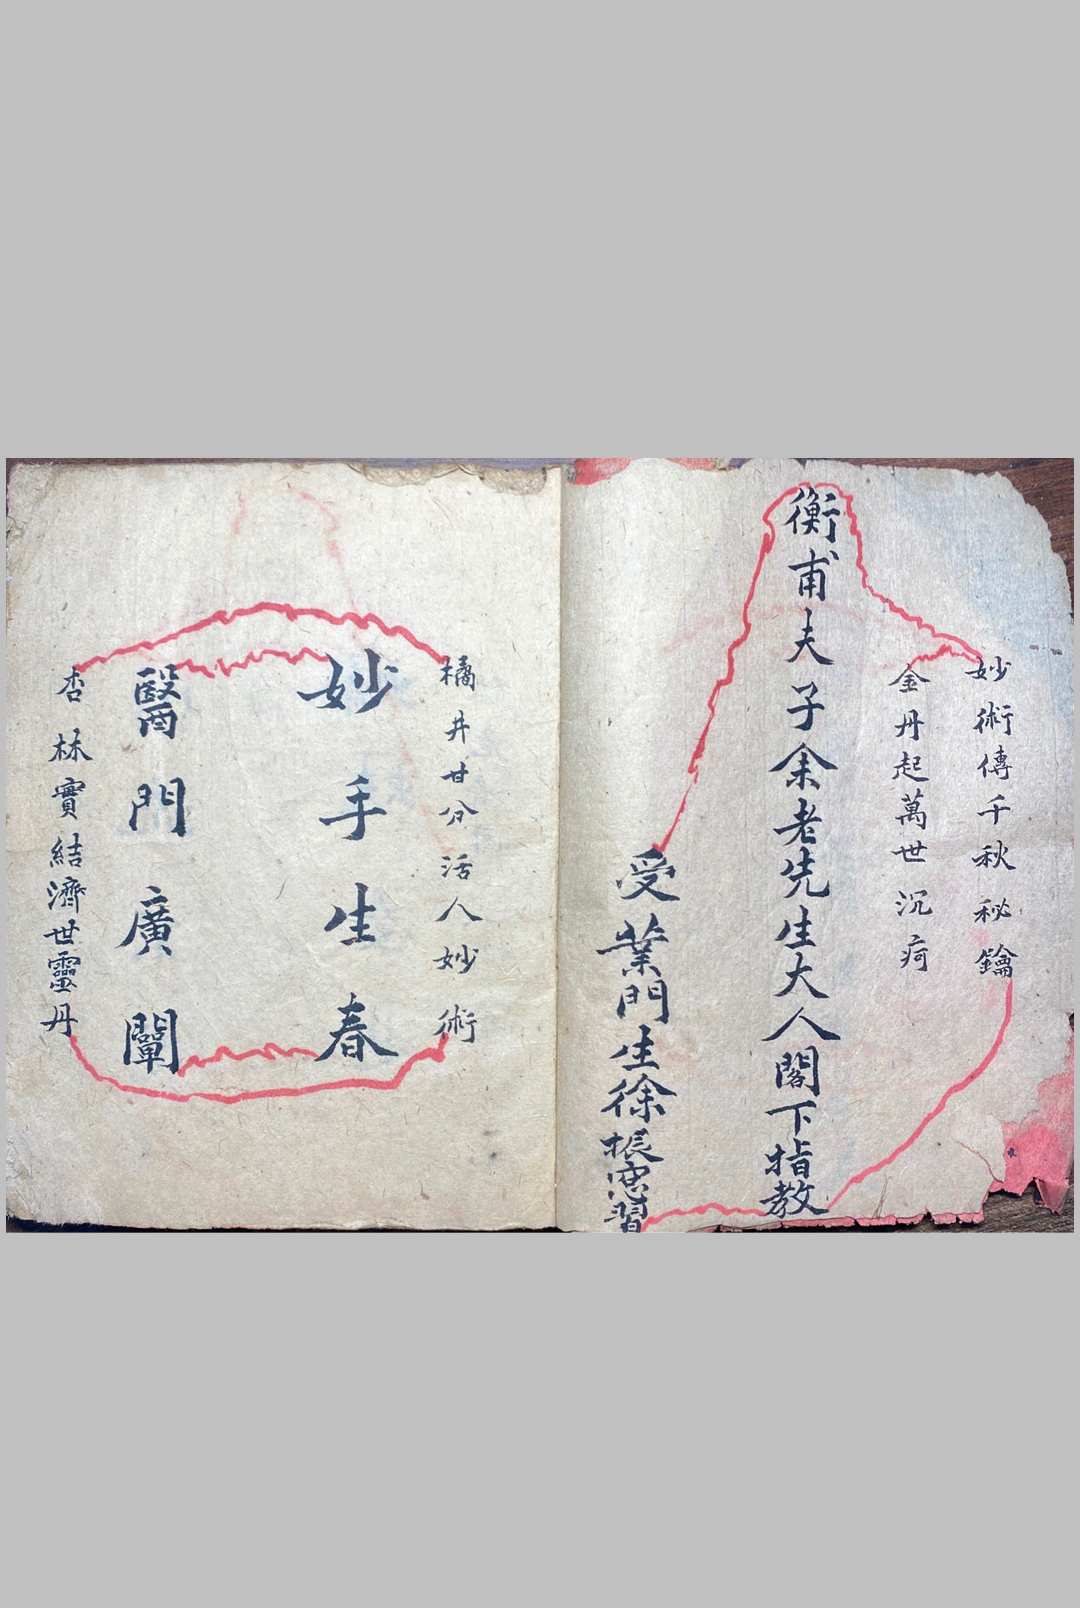 妙術傳千秋秘鑰
金丹起萬世沉疴
衡甫夫子余老先生大人閣下指教
受業門生徐振忠習
橘井甘分活人妙術
妙手生春
醫門廣闡
杏林實結濟世靈丹